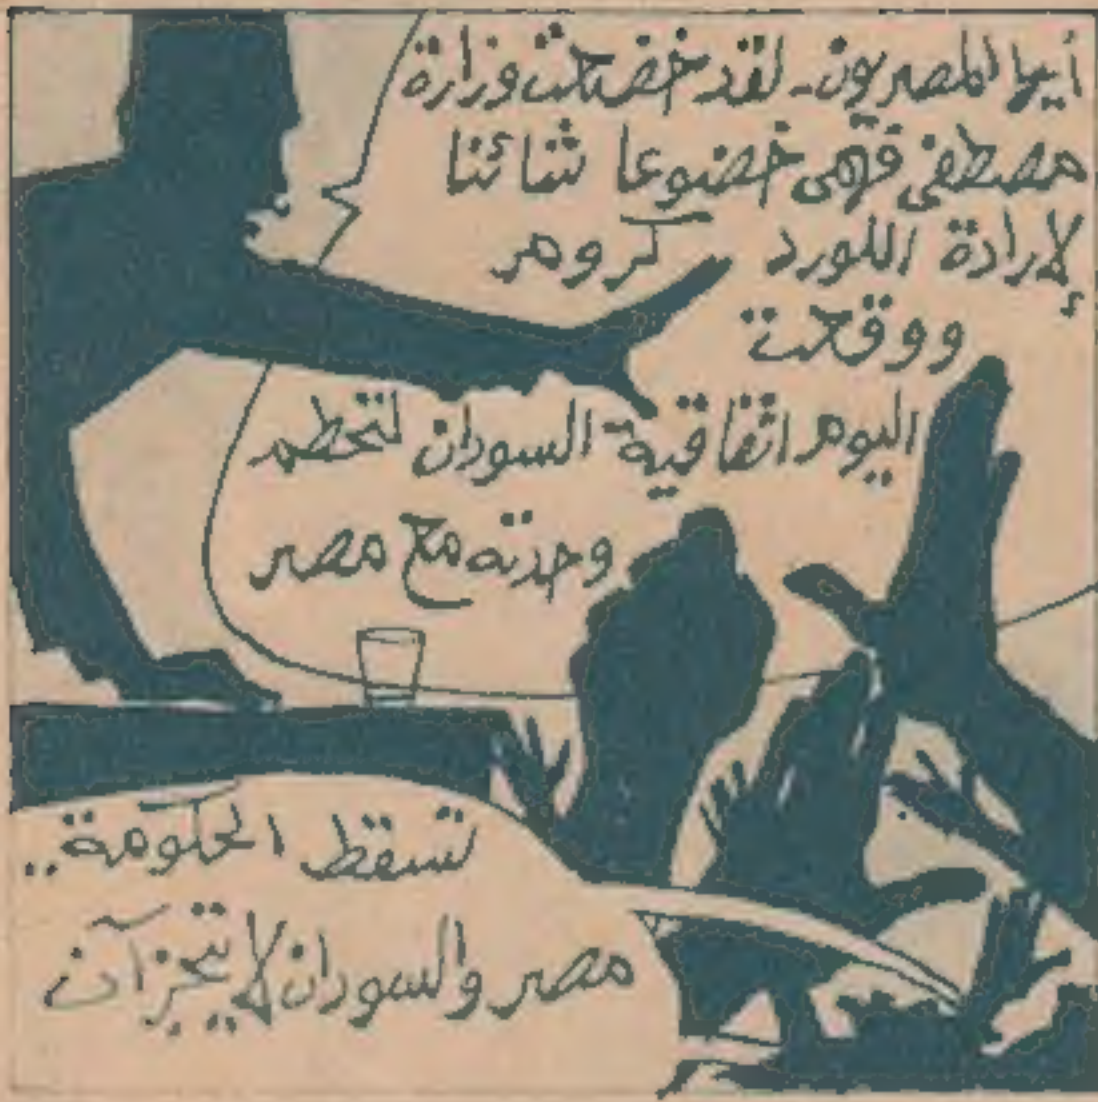 أيها المصريون - لقد خضعت وزارة
مصطفى فهمى خضوعا شائنا
لإرادة اللورد كرومر
ووقعت
اليوم اتفاقية السودان لتحطم
وحدته مع مصر
تسقط الحكومة..
مصر والسودان لا يتجزآن